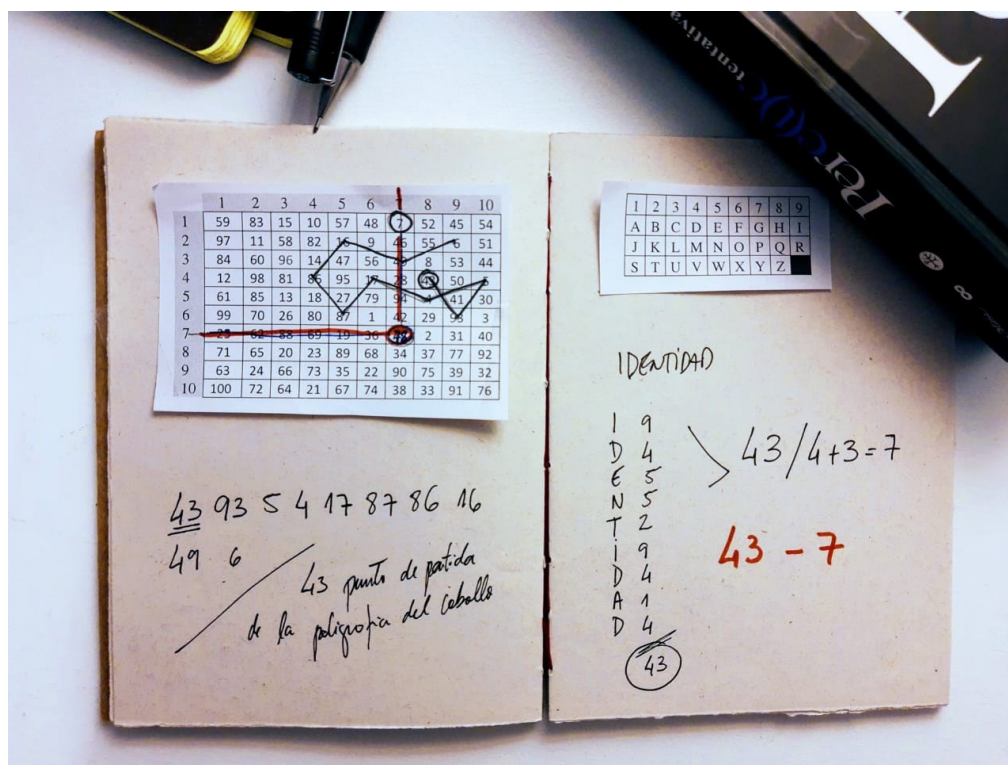 Perec(i)c tentativa
∞
1 2 3 4 5 6 7 8 9 10
1 59 83 15 10 57 48 7 52 45 54
2 97 11 58 82 16 9 46 55 6 51
3 84 60 96 14 47 56 49 8 53 44
4 12 98 81 86 95 17 28 43 50 5
5 61 85 13 18 27 79 94 4 41 30
6 99 70 26 80 87 1 42 29 93 3
7 25 62 88 69 19 36 2 31 40
8 71 65 20 23 89 68 34 37 77 92
9 63 24 66 73 35 22 90 75 39 32
10 100 72 64 21 67 74 38 33 91 76
43 93 5 4 17 87 86 16
49 6
43 punto de partida
de la poligrafia del caballo
1 2 3 4 5 6 7 8 9
A B C D E F G H I
J K L M N O P Q R
S T U V W X Y Z
IDENTIDAD
I 9
D 4
E 5
N 5
T 2
i 9
D 4
A 1
D 4
43
43/4+3=7
43 - 7